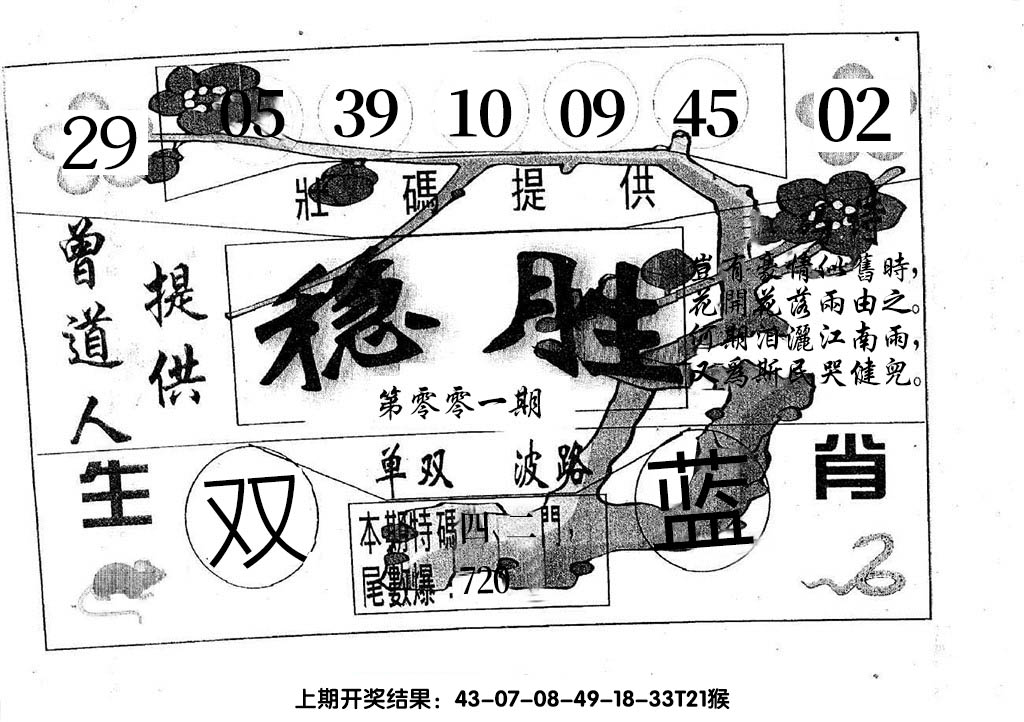 29 05 39 10 09 45 02
壯碼提供
特
曾道人
提供
稳胜
第零零一期
豈有豪情似舊時,
花開花落兩由之。
何期泪灑江南雨,
又為斯民哭健兒。
生肖
单双 波路
双
蓝
本期特碼四、二門,
尾數爆:720
上期开奖结果:43-07-08-49-18-33T21猴